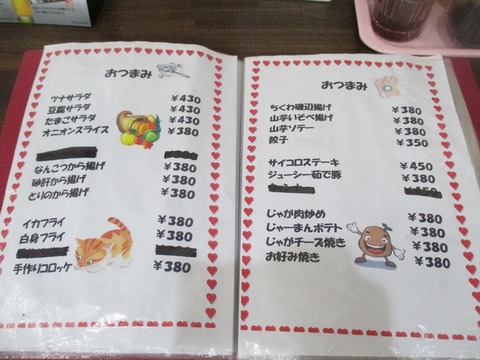 おつまみ
ツナサラダ ￥430
豆腐サラダ ￥430
たまごサラダ ￥430
オニオンスライス ￥380
なんこつから揚げ ￥380
砂肝から揚げ ￥380
とりのから揚げ ￥380
イカフライ ￥380
白身フライ ￥380
￥380
手作りコロッケ ￥380
おつまみ
ちくわ磯辺揚げ ￥380
山芋いそべ揚げ ￥380
山芋ソテー ￥380
餃子 ￥350
サイコロステーキ ￥450
ジューシー茹で豚 ￥380
じゃが肉炒め ￥380
じゃーまんポテト ￥380
じゃがチーズ焼き ￥380
お好み焼き ￥380